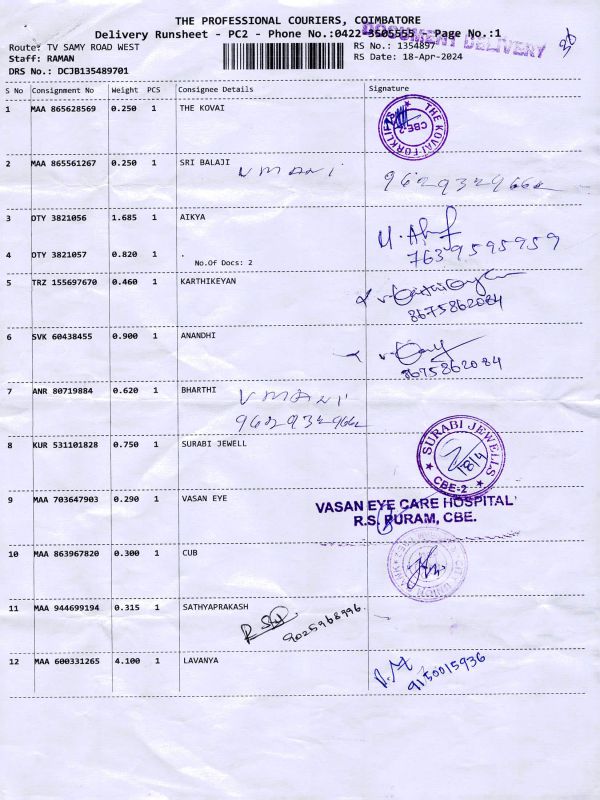 THE PROFESSIONAL COURIERS, COIMBATORE
Delivery Runsheet - PC2 - Phone No.:0422-3505555 - Page No.:1
DOCUMENT DELIVERY
Route: TV SAMY ROAD WEST RS No.: 1354897
Staff: RAMAN RS Date: 18-Apr-2024
DRS No.: DCJB135489701
S No Consignment No Weight PCS Consignee Details Signature
1 MAA 865628569 0.250 1 THE KOVAI
THE KOVAI FORKLIFTS CBE-2
2 MAA 865561267 0.250 1 SRI BALAJI
V MANI 9629329662
3 DTY 3821056 1.685 1 AIKYA
7639595959
4 DTY 3821057 0.820 1 .
No.Of Docs: 2
5 TRZ 155697670 0.460 1 KARTHIKEYAN
8675862084
6 SVK 60438455 0.900 1 ANANDHI
8675862084
7 ANR 80719884 0.620 1 BHARTHI
V MANI
9629329662
8 KUR 531101828 0.750 1 SURABI JEWELL
SURABI JEWELLS CBE-2
18/4
9 MAA 703647903 0.290 1 VASAN EYE
VASAN EYE CARE HOSPITAL
R.S. PURAM, CBE.
10 MAA 863967820 0.300 1 CUB
11 MAA 944699194 0.315 1 SATHYAPRAKASH
9025968996.
12 MAA 600331265 4.100 1 LAVANYA
9150015936